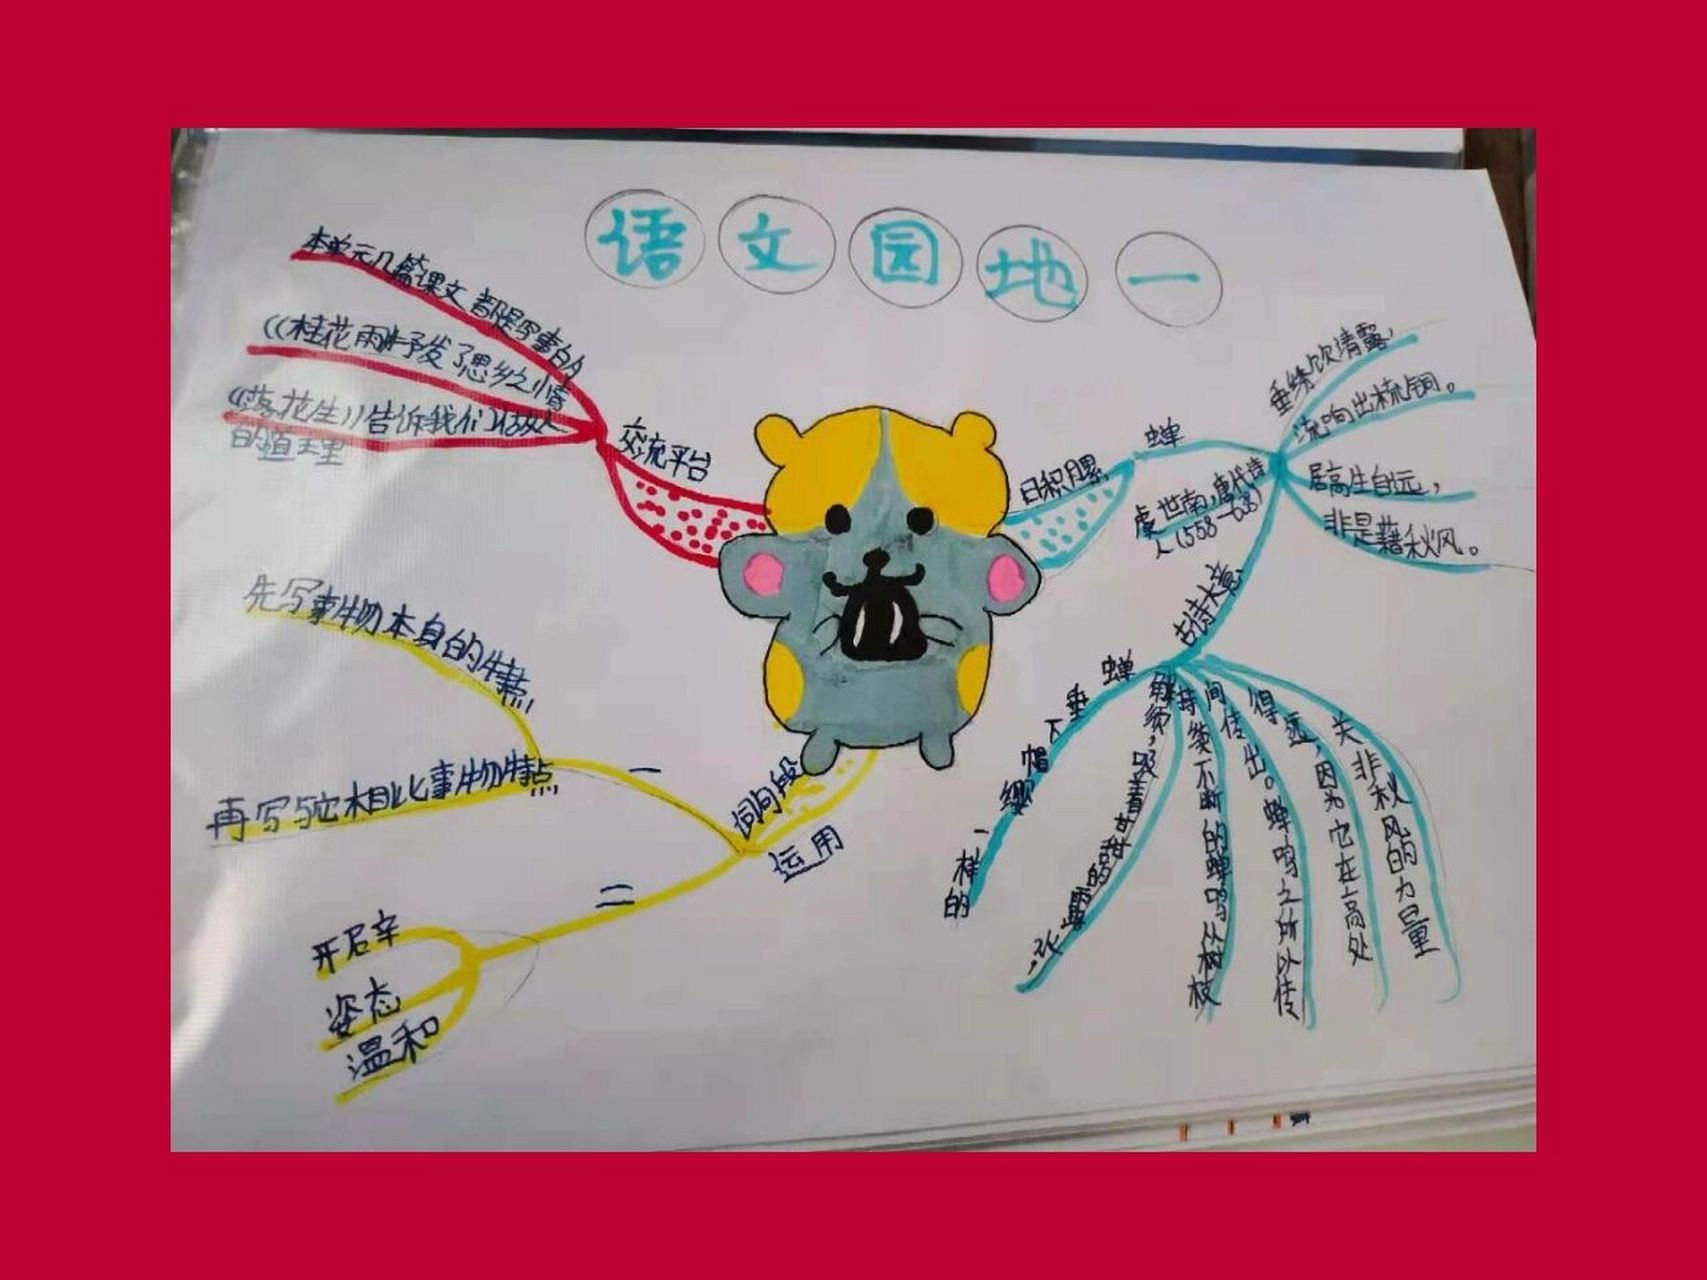 语文园地一
交流平台
本单元几篇课文都是写事的
《桂花雨》抒发了思乡之情
《落花生》告诉我们做人
的道理
日积月累
蝉
虞世南,唐代诗
人(558-638)
垂绣饮清露,
流响出梳桐。
居高生自远,
非是藉秋风。
古诗大意
蝉垂下帽缨一样的
触须,吸着甘甜的露水,
持续不断的蝉鸣从树枝
间传出。蝉鸣之所以传
得远,因为它在高处
关非秋风的力量
词句段
运用
一
先写事物本身的特点
再写与它相比事物特点
二
开启辛
姿态
温和